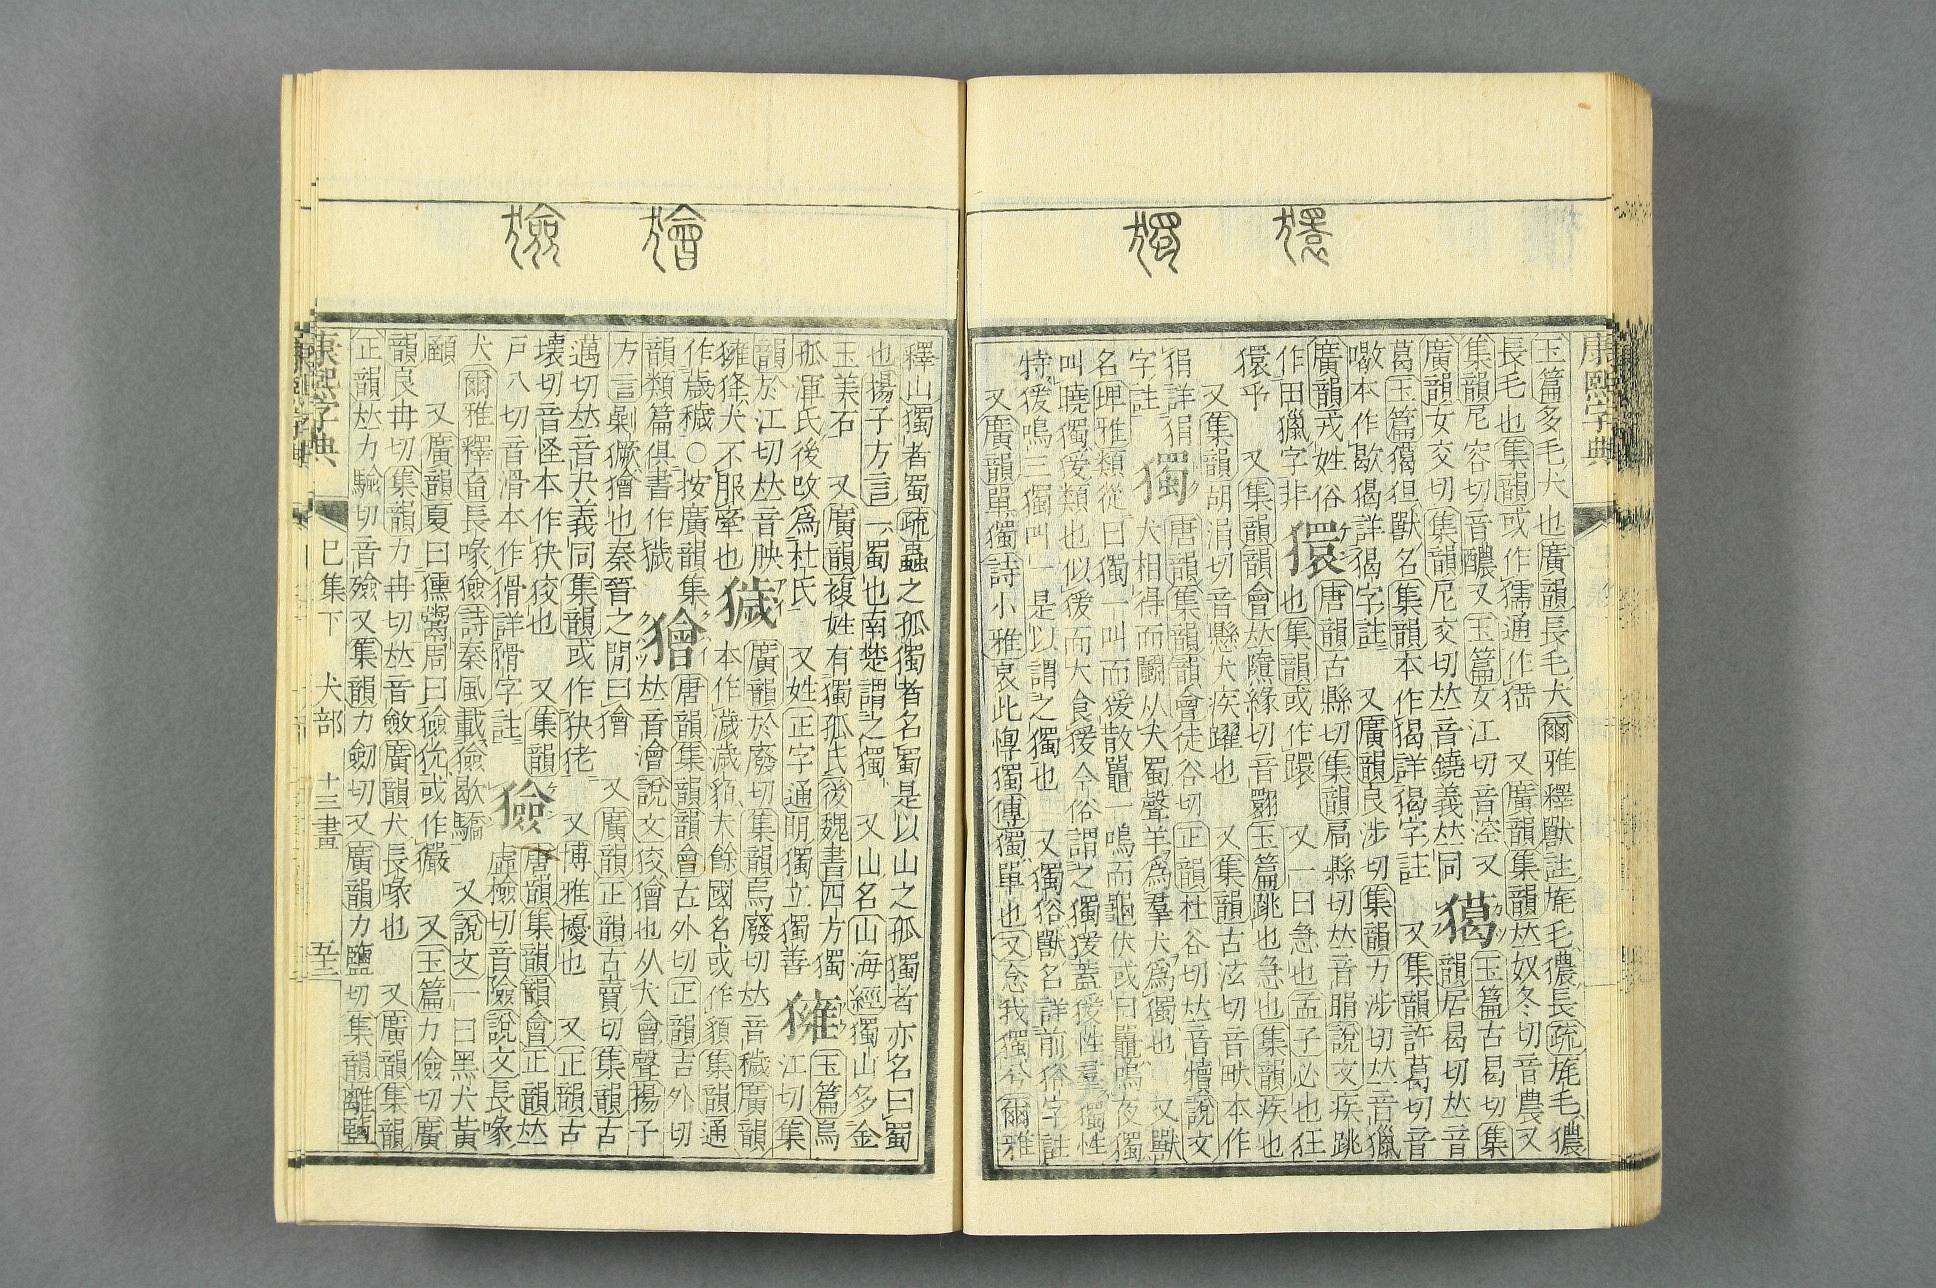 獧
獨
康熙字典
玉篇多毛犬也廣韻長毛犬爾雅釋獸註旄毛㺜長疏旄毛㺜
長毛也集韻或作獳通作 又廣韻集韻𠀤奴冬切音農又
集韻尼容切音醲又玉篇女江切音涳又 獦 玉篇古曷切集
廣韻女交切集韻尼交切𠀤音鐃義𠀤同 韻居曷切𠀤音
葛玉篇獦狚獸名集韻本作猲詳猲字註 又集韻許葛切音
本作歇猲詳猲字註 又廣韻良涉切集韻力涉切𠀤音獵
廣韻戎姓俗 獧 唐韻古縣切集韻扃縣切𠀤音睊說文疾跳
作田獵字非 也集韻或作 又一曰急也孟子必也狂
獧乎 又集韻韻會𠀤隳緣切音翾玉篇跳也急也集韻疾也
又集韻胡涓切音懸犬疾躍也 又集韻古泫切音畎本作
狷詳狷 獨 唐韻集韻韻會徒谷切正韻杜谷切𠀤音犢說文
字註 犬相得而鬭从犬蜀聲羊爲羣犬爲獨也 又獸
名埤雅類從曰獨一叫而猨散鼉一鳴而龜伏或曰鼉鳴夜獨
叫曉獨猨類也似猨而大食猨今俗謂之獨猨蓋猨性羣獨性
特猨鳴三獨叫一是以謂之獨也 又獨𤞞獸名詳前𤞞字註
又廣韻單獨詩小雅哀此惸獨傳獨單也又念我獨兮爾雅
獪
獫
釋山獨者蜀疏蟲之孤獨者名蜀是以山之孤獨者亦名曰蜀
也揚子方言一蜀也南楚謂之獨 又山名山海經獨山多金
玉美石 又廣韻複姓有獨孤氏後魏書四方獨 㺋 玉篇烏
孤渾氏後改爲杜氏 又姓正字通明獨立獨善 江切集
韻於江切𠀤音胦 獩 廣韻於廢切集韻烏廢切𠀤音穢廣韻
㺋㹿犬不服牽也 本作濊濊貊夫餘國名或作獩集韻通
作薉穢○按廣韻集 獪 唐韻集韻韻會古外切正韻吉外切
韻類篇俱書作獩 𠀤音澮說文狡獪也从犬會聲揚子
方言剿獗獪也秦晉之閒曰獪 又廣韻正韻古賣切集韻古
邁切𠀤音夬義同集韻或作狭狯 又博雅擾也 又正韻古
壞切音怪本作狭狡也 又集韻 獫 唐韻集韻韻會正韻𠀤
戸八切音滑本作猾詳猾字註 虛檢切音險說文長喙
犬爾雅釋畜長喙獫詩秦風載獫歇驕 又說文一曰黑犬黃
頤 又廣韻夏曰獯鬻周曰獫狁或作玁 又玉篇力儉切廣
韻良冉切集韻力冉切𠀤音斂廣韻犬長喙也 又廣韻集韻
正韻𠀤力驗切音殮又集韻力劒切又廣韻力鹽切集韻離鹽
康熙字典 巳集下 犬部 十三畫 五十三